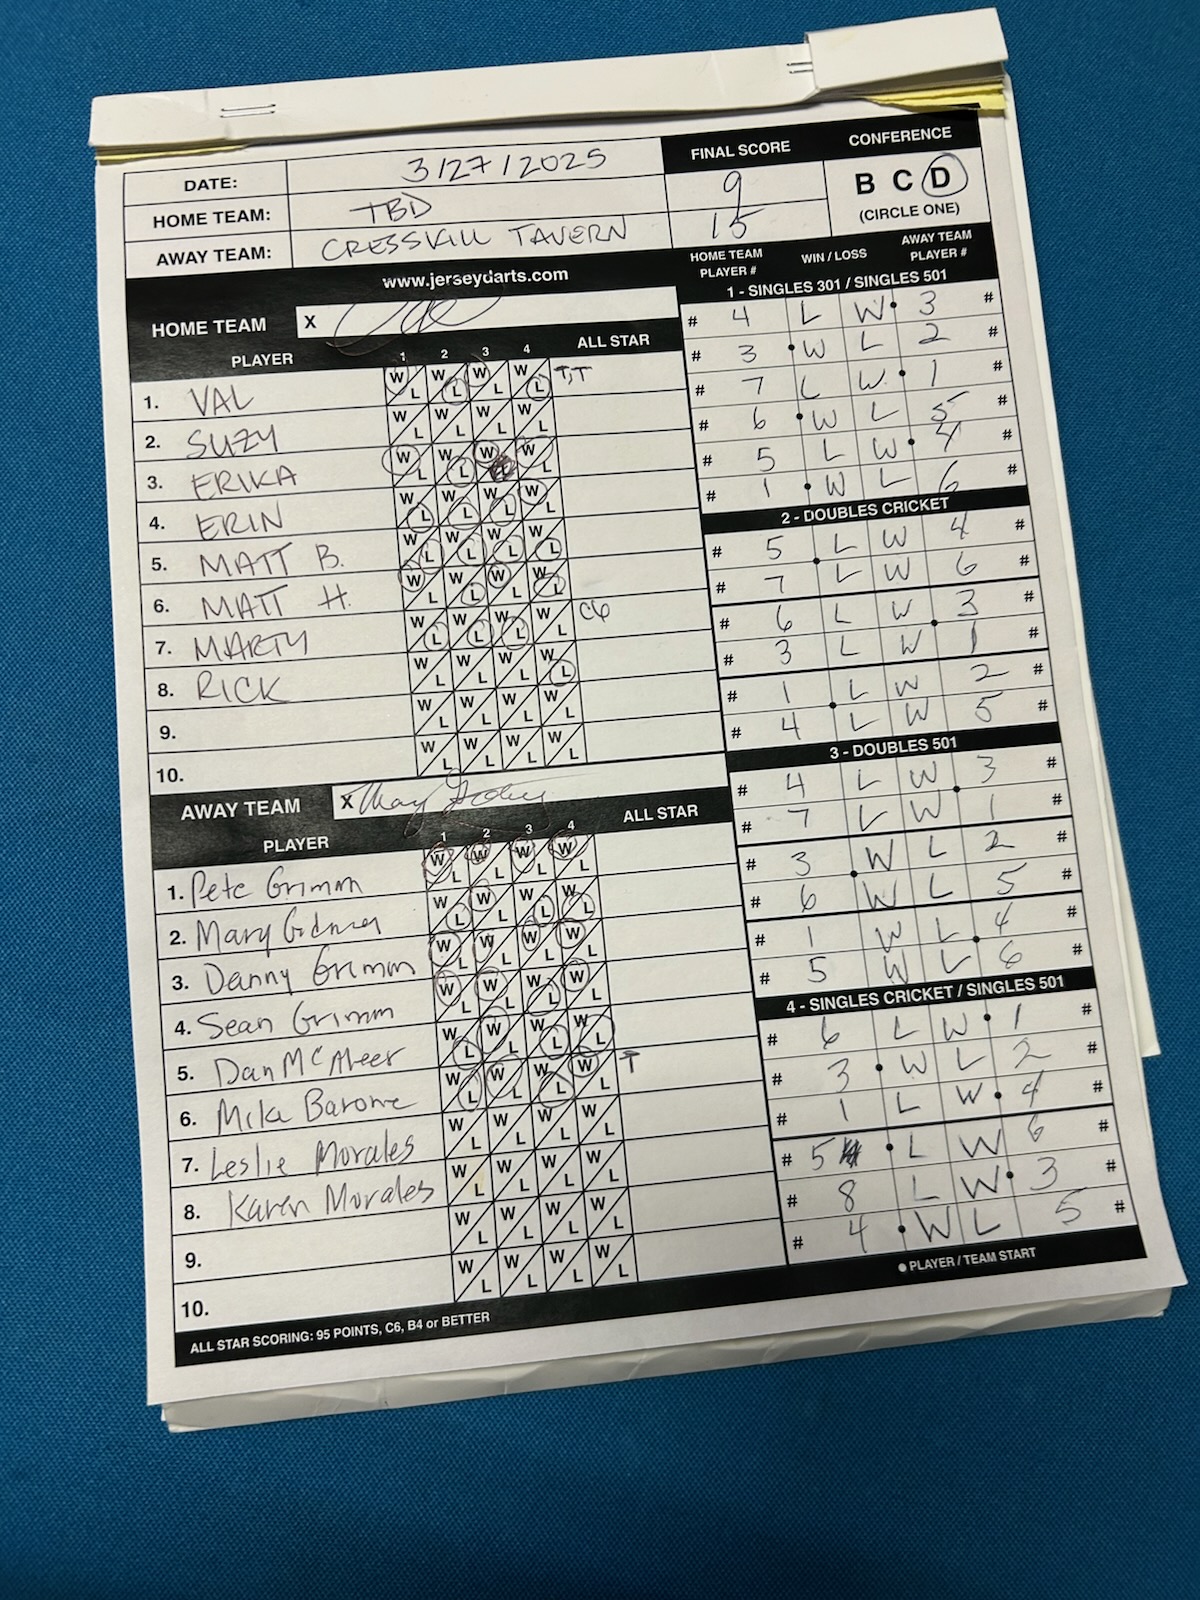 DATE: 3/27/2025
HOME TEAM: TBD
AWAY TEAM: CRESSKILL TAVERN
FINAL SCORE
9
15
CONFERENCE
B C D
(CIRCLE ONE)
www.jerseydarts.com
HOME TEAM X
PLAYER 1 2 3 4 ALL STAR
1. VAL W L W L W L W L T,T
2. SUZY W L W L W L W L
3. ERIKA W L W L W L W L
4. ERIN W L W L W L W L
5. MATT B. W L W L W L W L
6. MATT H. W L W L W L W L
7. MARTY W L W L W L W L C6
8. RICK W L W L W L W L
9. W L W L W L W L
10. W L W L W L W L
AWAY TEAM X
PLAYER 1 2 3 4 ALL STAR
1. Pete Grimm W L W L W L W L
2. Mary W L W L W L W L
3. Danny Grimm W L W L W L W L
4. Sean Grimm W L W L W L W L
5. Dan McAleer W L W L W L W L
6. Mike Barone W L W L W L W L T
7. Leslie Morales W L W L W L W L
8. Karen Morales W L W L W L W L
9. W L W L W L W L
10. W L W L W L W L
ALL STAR SCORING: 95 POINTS, C6, B4 or BETTER
HOME TEAM PLAYER # WIN / LOSS AWAY TEAM PLAYER #
1 - SINGLES 301 / SINGLES 501
# 4 L W 3 #
# 3 W L 2 #
# 7 L W 1 #
# 6 W L 5 #
# 5 L W 4 #
# 1 W L 6 #
2 - DOUBLES CRICKET
# 5 L W 4 #
# 7 L W 6 #
# 6 L W 3 #
# 3 L W 1 #
# 1 L W 2 #
# 4 L W 5 #
3 - DOUBLES 501
# 4 L W 3 #
# 7 L W 1 #
# 3 W L 2 #
# 6 W L 5 #
# 1 W L 4 #
# 5 W L 6 #
4 - SINGLES CRICKET / SINGLES 501
# 6 L W 1 #
# 3 W L 2 #
# 1 L W 4 #
# 5 L W 6 #
# 8 L W 3 #
# 4 W L 5 #
PLAYER / TEAM START